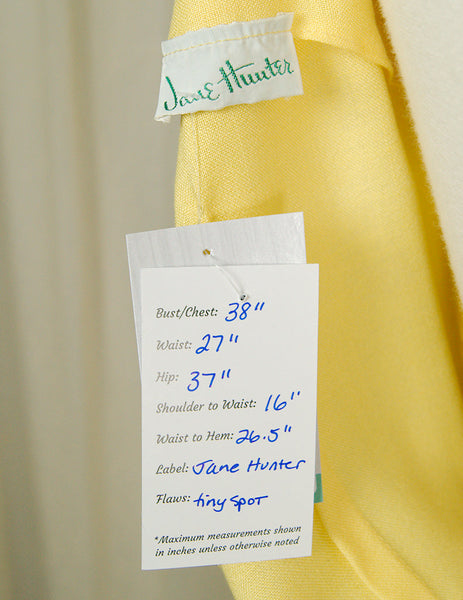 Jane Hunter
Bust/Chest: 38"
Waist: 27"
Hip: 37"
Shoulder to Waist: 16"
Waist to Hem: 26.5"
Label: Jane Hunter
Flaws: tiny spot
*Maximum measurements shown
in inches unless otherwise noted